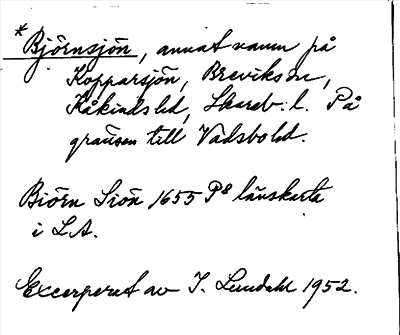 *Björnsjön, annat namn på
Kopparsjön, Breviks sn,
Kåkinds hd, Skarab. l. På
gränsen till Vadsbo hd.
Biörn Siön 1655 P8 länskarta
i L.A.
Excerperat av I. Lundahl 1952.